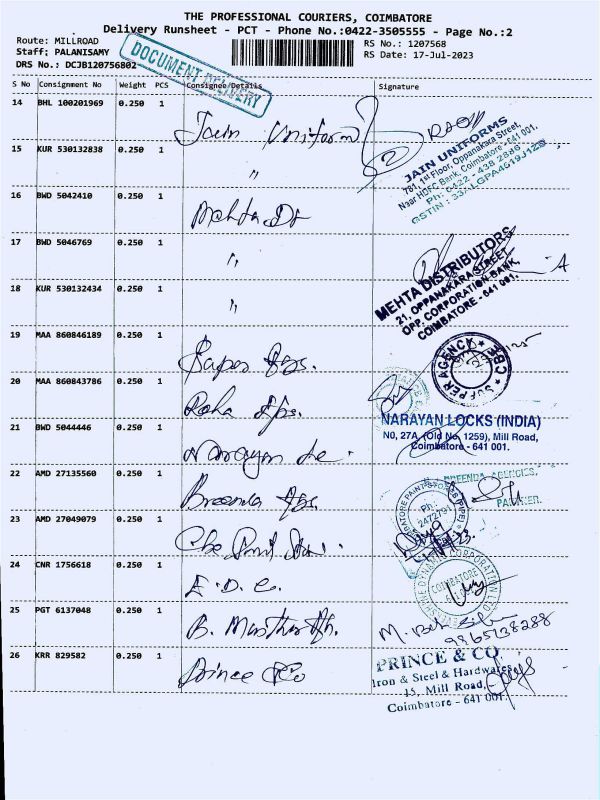 THE PROFESSIONAL COURIERS, COIMBATORE
Delivery Runsheet - PCT - Phone No.:0422-3505555 - Page No.:2
Route: MILLROAD
RS No.: 1207568
Staff; PALANISAMY
RS Date: 17-Jul-2023
DRS No.: DCJB120756802
DOCUMENT DELIVERY
S No Consignment No Weight PCS Consignee/Details Signature
14 BHL 100201969 0.250 1 Jain Uniform
15 KUR 530132838 0.250 1 "
JAIN UNIFORMS
781, 1st Floor, Oppanakara Street,
Near HDFC Bank, Coimbatore - 641 001.
Ph: 0422 - 438 2886
16 BWD 5042410 0.250 1 Mehta Dr
17 BWD 5046769 0.250 1 "
18 KUR 530132434 0.250 1 "
MEHTA DISTRIBUTORS
21, OPPANAKARA STREET,
OPP. CORPORATION BANK,
COIMBATORE - 641 001.
19 MAA 860846189 0.250 1
SUPPER AGENCY CBE
20 MAA 860843786 0.250 1
21 BWD 5044446 0.250 1 Narayan Lo
NARAYAN LOCKS (INDIA)
NO, 27A, (Old No, 1259), Mill Road,
Coimbatore - 641 001.
22 AMD 27135560 0.250 1 Breenda Ags.
BREENDA AGENCIES,
PARTNER.
23 AMD 27049079 0.250 1
Ph:
2472791
24 CNR 1756618 0.250 1 E. D. C.
COIMBATORE
25 PGT 6137048 0.250 1
9865738288
26 KRR 829582 0.250 1 Prince &Co
PRINCE & CO
Iron & Steel & Hardwares
15, Mill Road,
Coimbatore - 641 001.